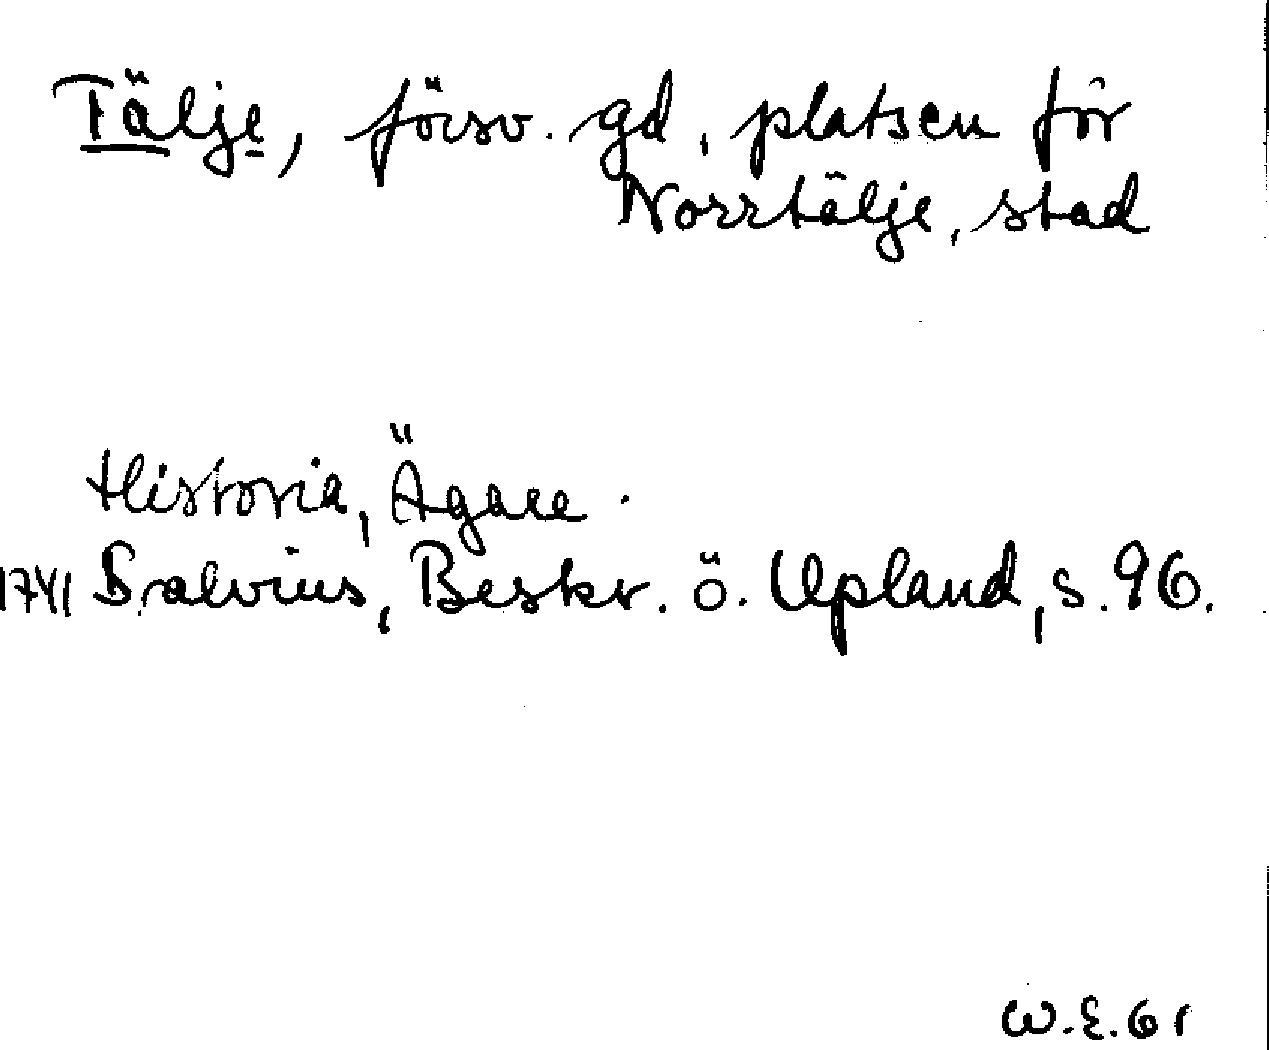 Tälje, försv. gd, platsen för
Norrtälje, stad
Historia, Ägare.
1741 Salvius, Beskr. ö. Upland, s. 96.
W.E.61